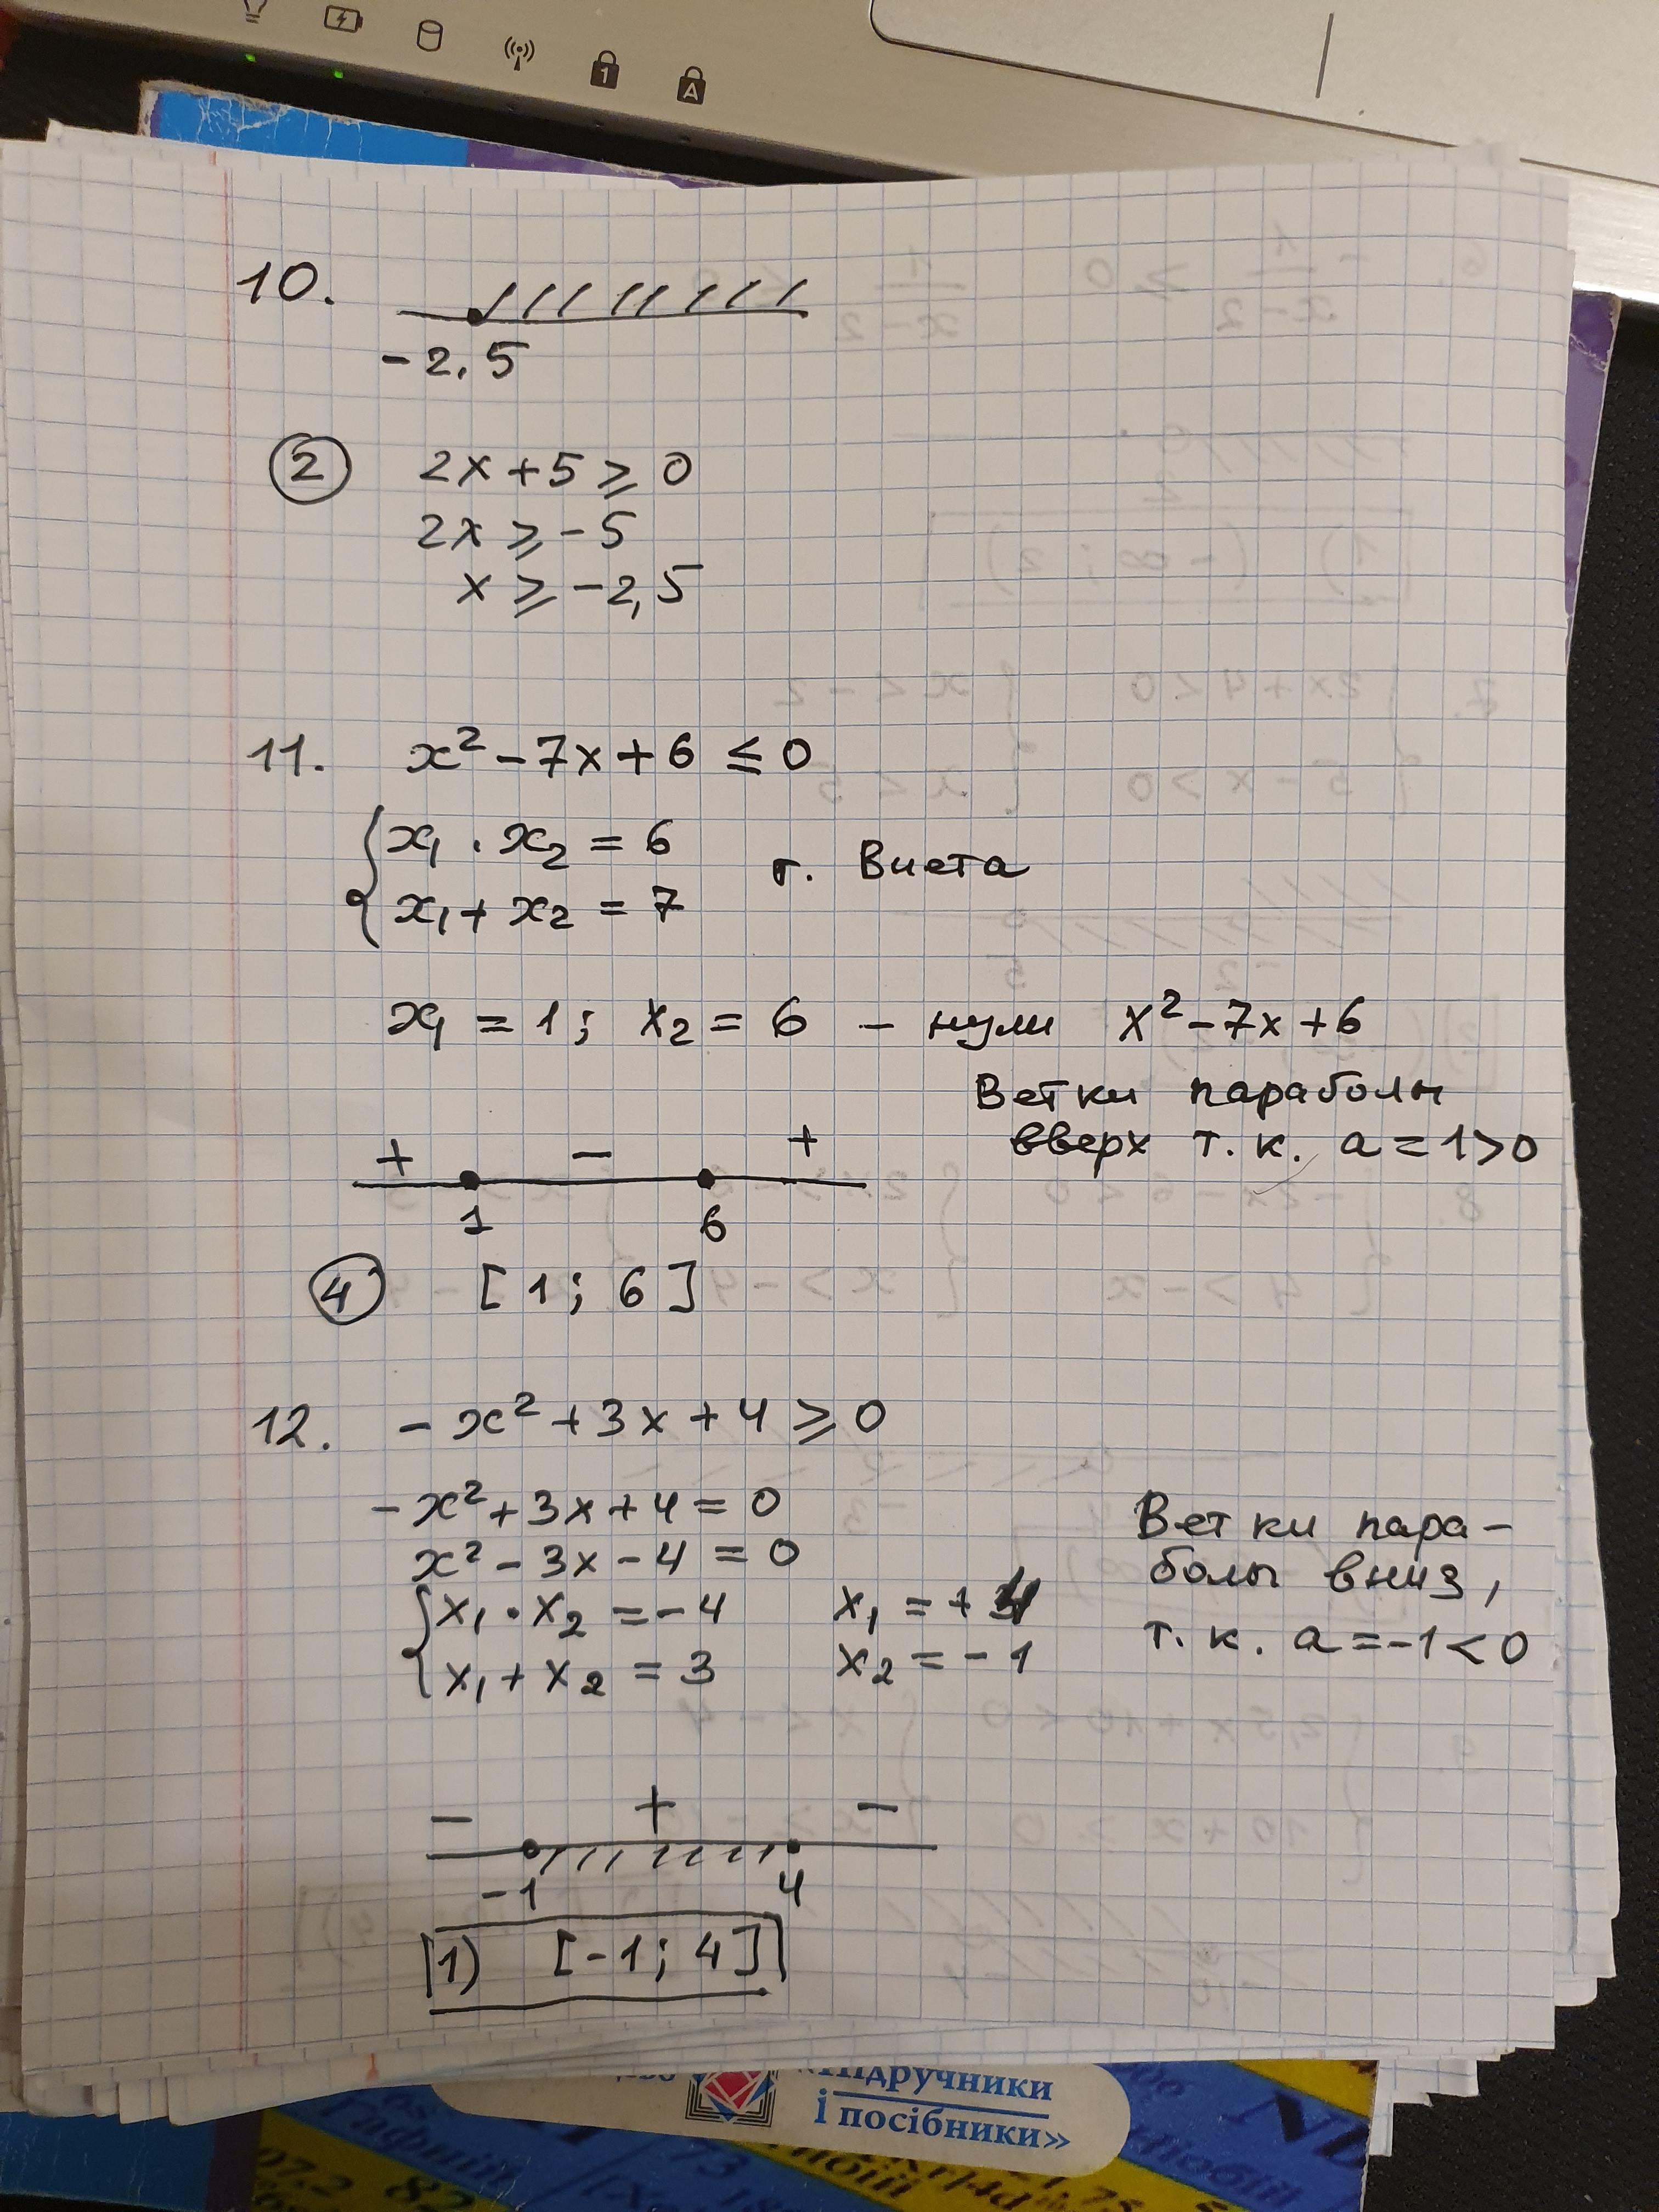 10.
-2,5
2 2x+5 ⩾ 0
2x ⩾ -5
x ⩾ -2,5
11. x² - 7x + 6 ≤ 0
x₁ · x₂ = 6
т. Виета
x₁ + x₂ = 7
x₁ = 1; x₂ = 6 - нули x² - 7x + 6
Ветки параболы
вверх т.к. a = 1>0
+ - +
1 6
4 [1; 6]
12. -x² + 3x + 4 ⩾ 0
-x² + 3x + 4 = 0
x² - 3x - 4 = 0
x₁ · x₂ = -4 x₁ = +4
x₁ + x₂ = 3 x₂ = -1
Ветки пара-
болы вниз,
т.к. a = -1 < 0
- + -
-1 4
1) [-1; 4]
«Підручники
і посібники»